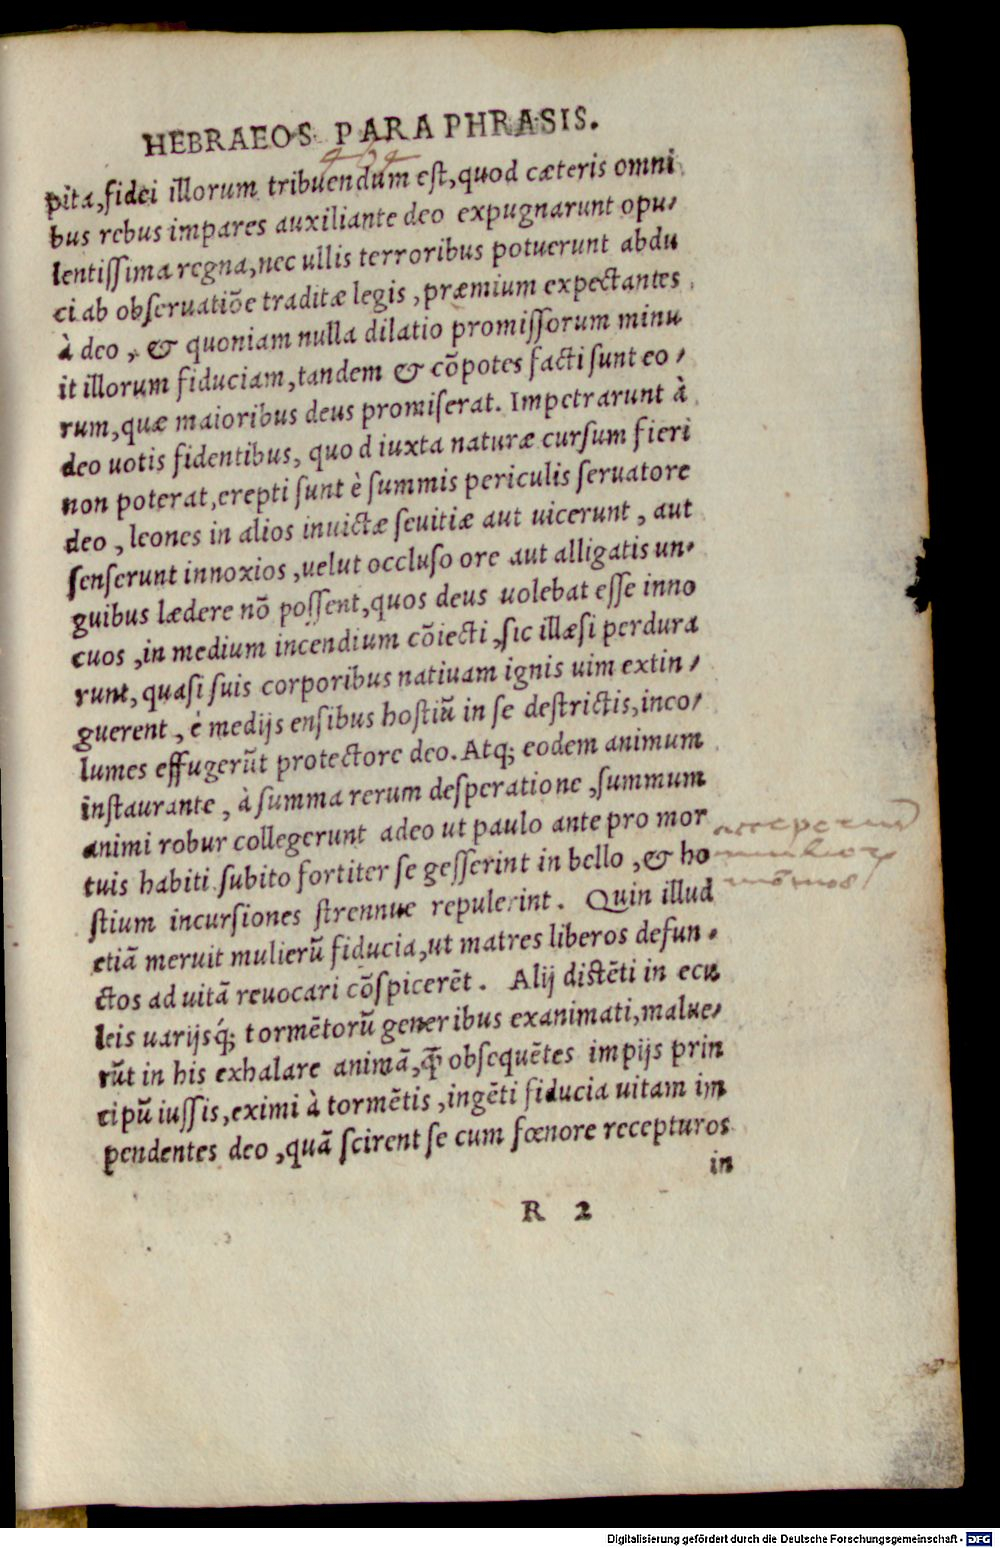 HEBRAEOS PARAPHRASIS.
pita, fidei illorum tribuendum est, quod cæteris omni
bus rebus impares auxiliante deo expugnarunt opu-
lentissima regna, nec ullis terroribus potuerunt abdu
ci ab obseruatiõe traditæ legis, præmium expectantes
à deo, & quoniam nulla dilatio promissorum minu
it illorum fiduciam, tandem & cõpotes facti sunt eo-
rum, quæ maioribus deus promiserat. Impetrarunt à
deo uotis fidentibus, quod iuxta naturæ cursum fieri
non poterat, erepti sunt è summis periculis seruatore
deo, leones in alios inuictæ seuitiæ aut uicerunt, aut
senserunt innoxios, uelut occluso ore aut alligatis un-
guibus lædere nõ possent, quos deus uolebat esse inno
cuos, in medium incendium cõiecti, sic illæsi perdura
runt, quasi suis corporibus natiuam ignis uim extin-
guerent, è medijs ensibus hostiũ in se destrictis, inco-
lumes effugerũt protectore deo. Atq; eodem animum
instaurante, à summa rerum desperatione, summum
animi robur collegerunt adeo ut paulo ante pro mor
tuis habiti subito fortiter se gesserint in bello, & ho
stium incursiones strennue repulerint. Quin illud
etiã meruit mulierũ fiducia, ut matres liberos defun-
ctos ad uitã reuocari cõspicerẽt. Alij distẽti in ecu
leis uarijsq́; tormẽtorũ generibus exanimati, malue-
rũt in his exhalare animã, q̃ obsequẽtes impijs prin
cipũ iussis, eximi à tormẽtis, ingẽti fiducia uitam im
pendentes deo, quã scirent se cum fœnore recepturos
in
R 2
Digitalisierung gefördert durch die Deutsche Forschungsgemeinschaft - DFG